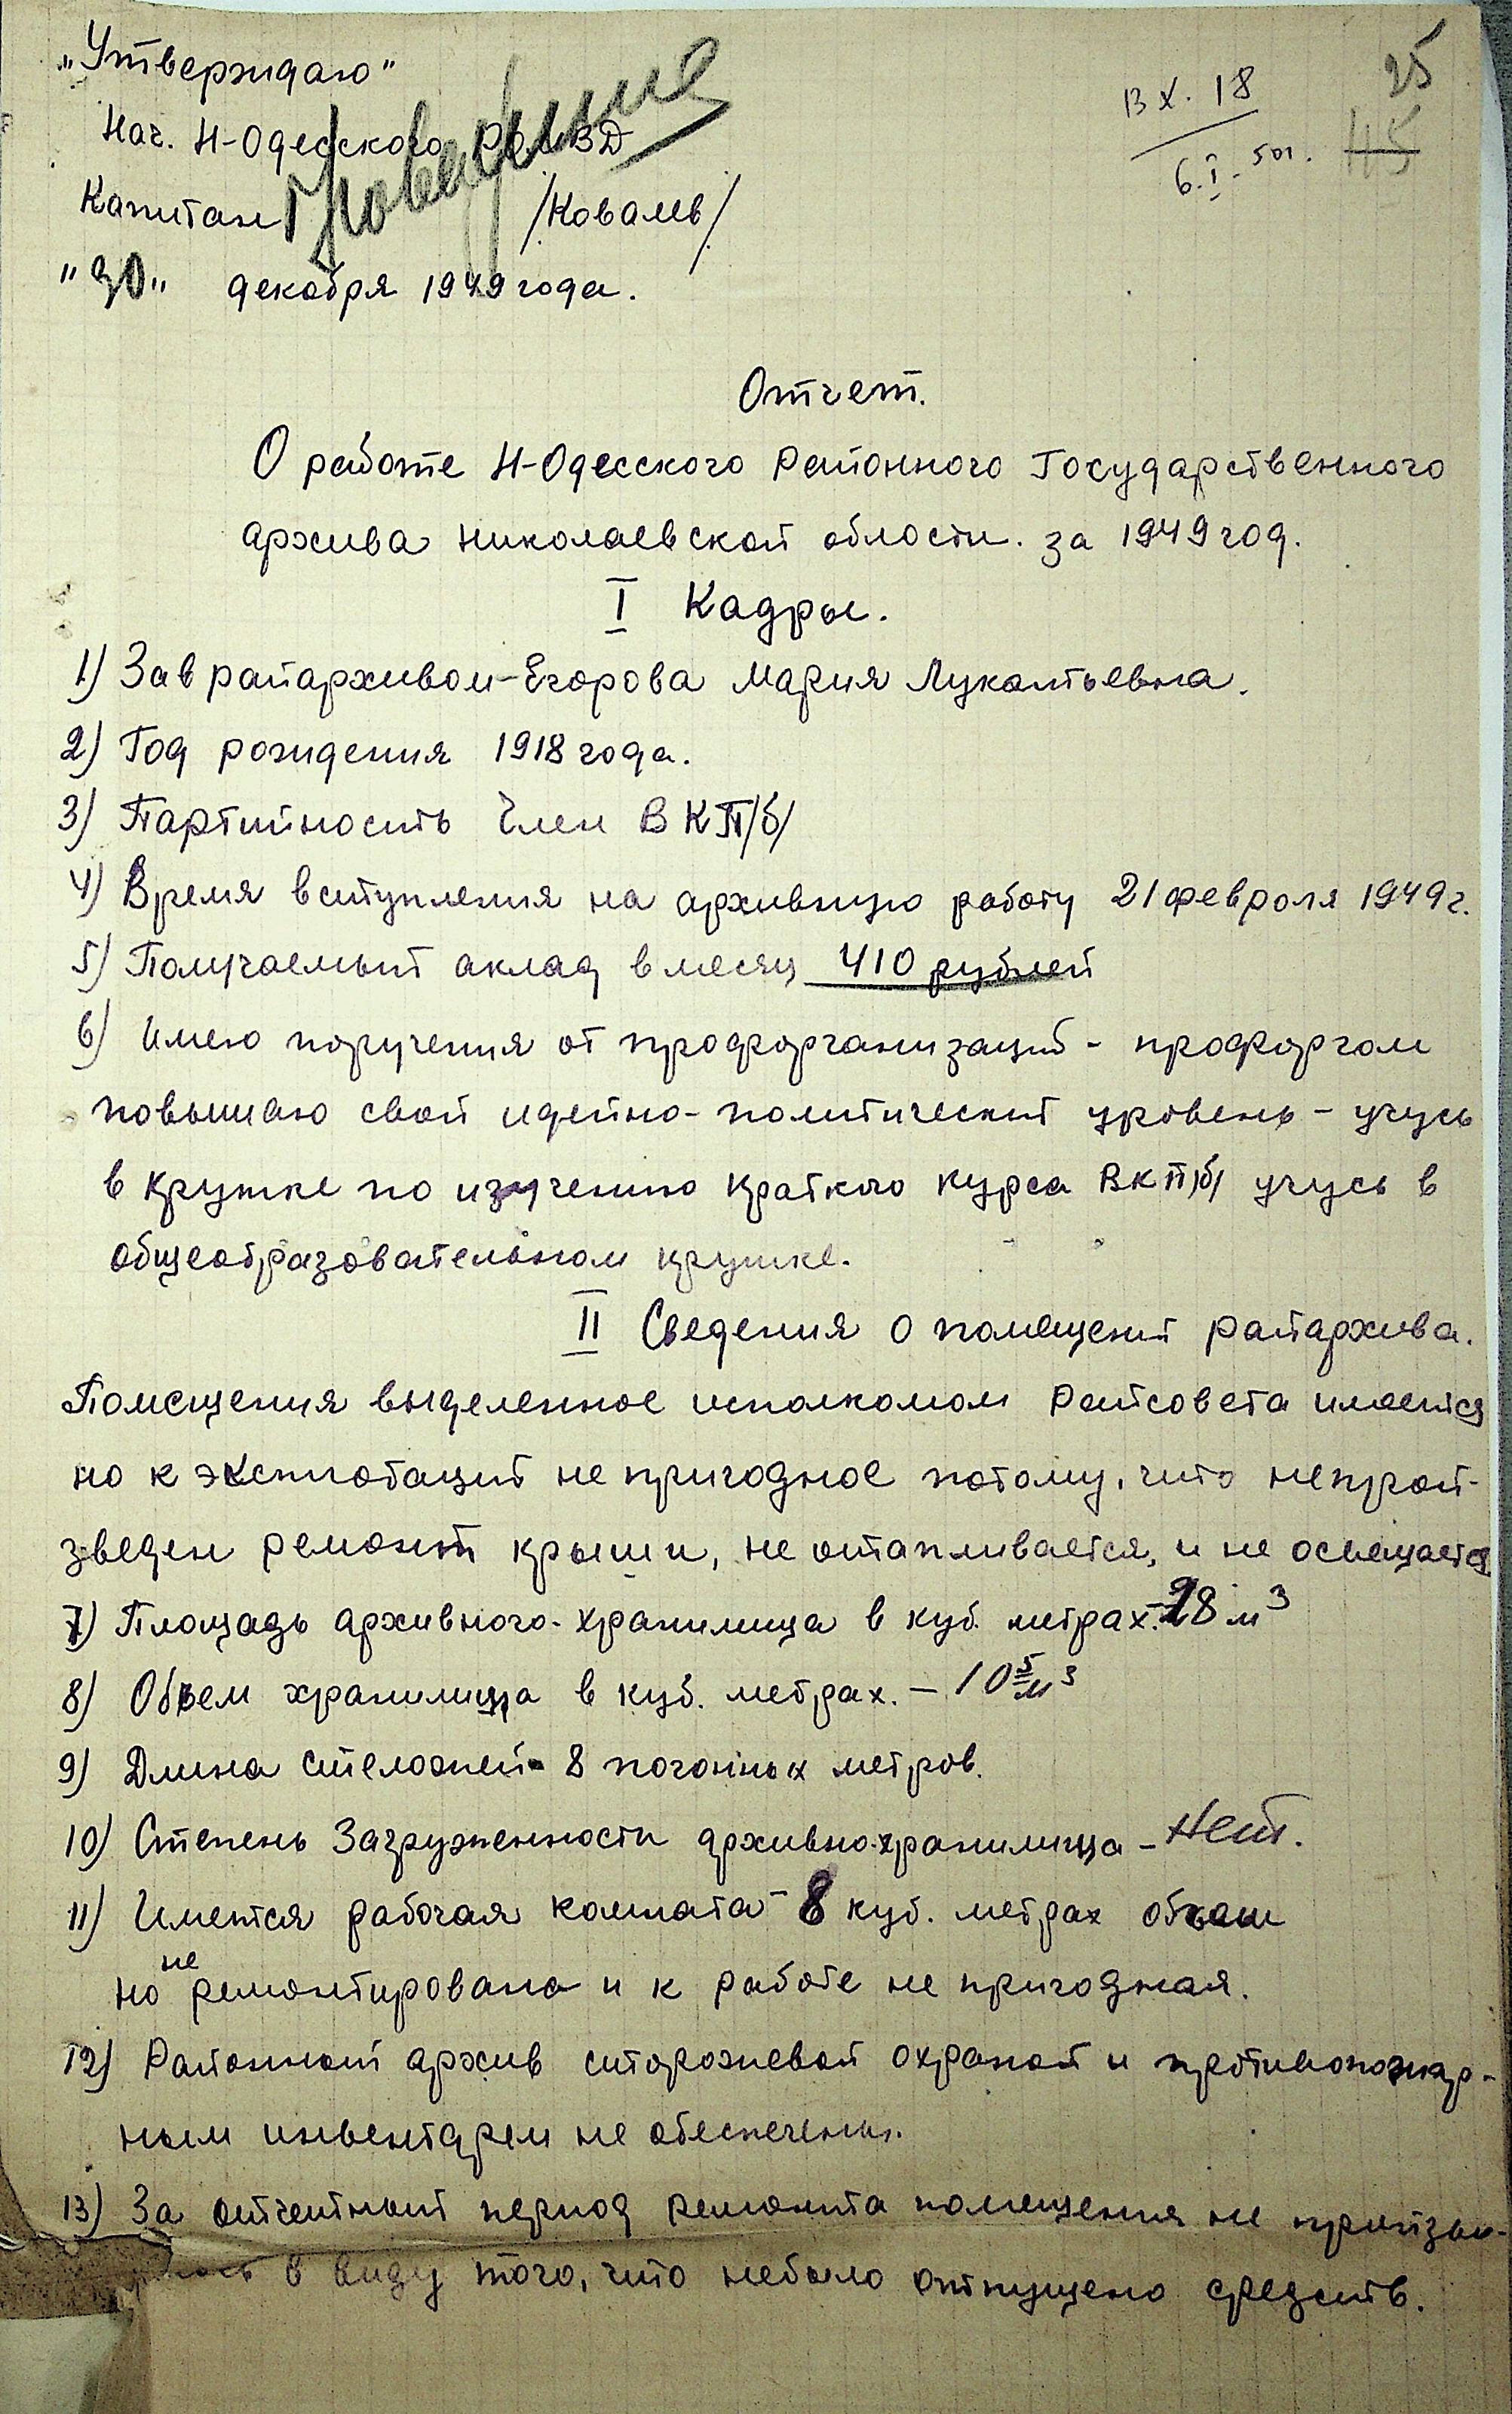 „Утверждаю"
Нач. Н-Одесского РОМВД
Капитан /Ковалев/
"30" декабря 1949 года.
Вх. 18
6.I-50г.
25
45
Отчет.
О работе Н-Одесского Районного Государственного
архива николаевской области. за 1949 год.
I Кадры.
1) Зав райархивом - Егорова Мария Лукантьевна.
2) Год рождения 1918 года.
3) Партийность Член ВКП/б/
4) Время вступления на архивную работу 21 февроля 1949 г.
5) Получаемый аклад в месяц 410 рублей
6) Имею поручения от профорганизаций - профоргом
повышаю свой идейно-политический уровень - учусь
в кружке по изучению краткого курса ВКП/б/ учусь в
общеобразовательном кружке.
II Сведения о помещений райархива.
Помещения выделенное исполкомом Райсовета имеется
но к эксплотаций не пригодное потому, что непрой-
зведен ремонт крыши, не отапливается, и не освещается
7) Площадь архивного-хранилища в куб. метрах. 28 м³
8) Объем хранилища в куб. метрах. - 10⁵ м³
9) Длина стеложей - 8 погонных метров.
10) Степень Загруженности архивно-хранилища - Нет.
11) Имеется рабочая комната - 8 куб. метрах объем
но не ремонтирована и к работе не пригодная.
12) Районный архив сторожевой охраной и противопожар-
ным инвентарем не обеспечены.
13) За отчетный период ремонта помещения не пройзво-
в виду того, что небыло отпущено средств.